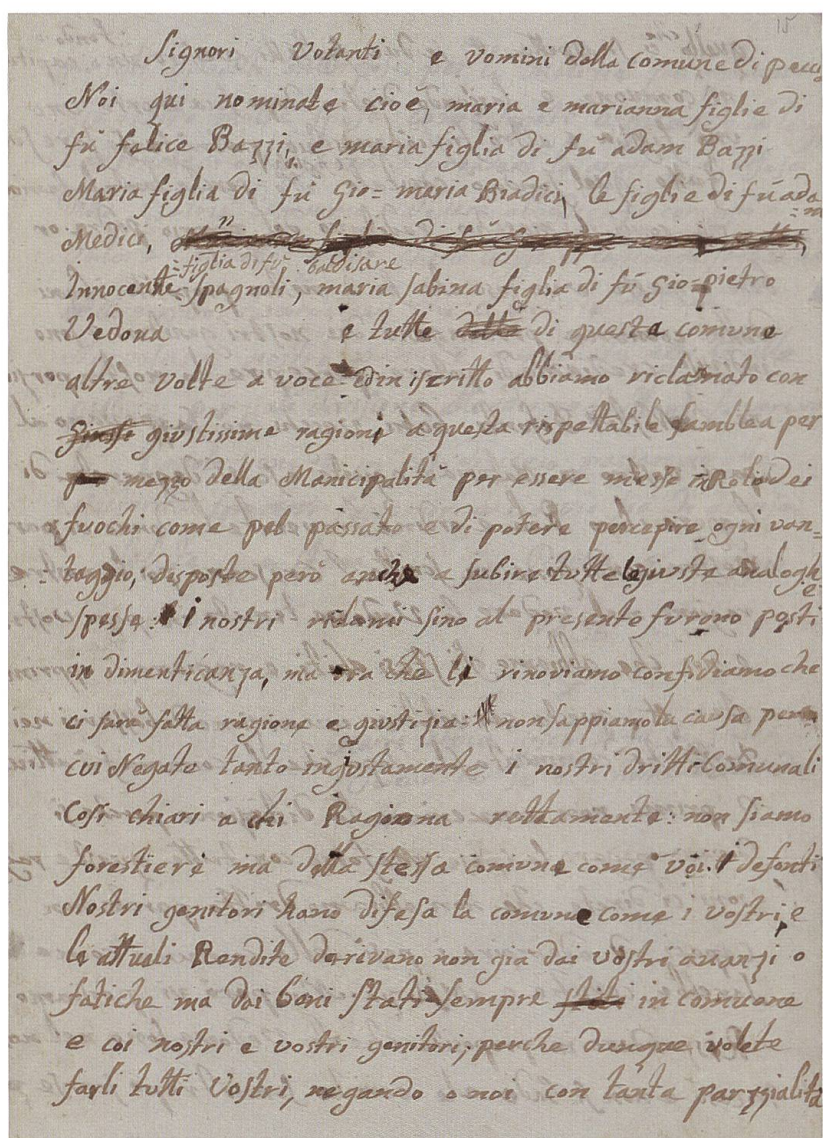 15
Signori Votanti e vomini della comune di pecc
Noi qui nominate cioè, maria e marianna figlie di
fù felice Bazzi, e maria figlia di fù adam Bazzi
Maria figlia di fù Gio= maria Biadici, le figlie di fù ada
=m
Medici,
=figlia di fù baldisare
Innocente Spagnoli, maria sabina figlia di fù Gio=pietro
Vedova e tutte dette di questa comune
altre volte a voce ed in iscritto abbiamo riclamato con
giustissime ragioni a questa rispettabile samblea per
mezzo della Manicipalità per essere messe in Rolo dei
fuochi come pel passato e di potere percepire ogni van=
=taggio, disposte però anche a subire tutte le giuste analogh
e
spesse: i nostri sino al presente furono posti
in dimenticanza, ma ora che li rinoviamo confidiamo che
ci sarà fatta ragione e giustizia: non sappiamo la causa per
cui Negate tanto ingiustamente i nostri dritti Comunali
Così chiari a chi Ragiona rettamente: non siamo
forestiere ma della stessa comune come voi. i defonti
Nostri genitori hano difesa la comune come i vostri, e
le attuali Rendite derivano non già dai vostri avanzi o
fatiche ma dai beni stati sempre in comune
e coi nostri e vostri genitori, perche dunque volete
farli tutti Vostri, negando a noi con tanta parzzialità